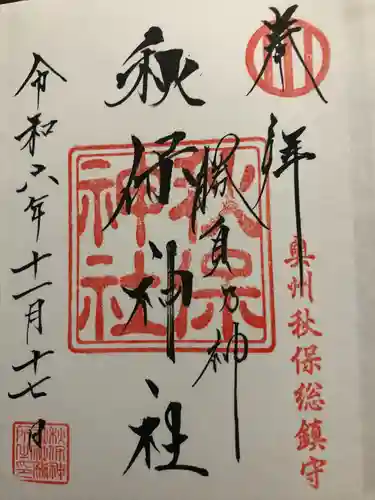 奉拝
奥州秋保総鎮守
勝負の神
秋保神社
秋保神社
令和六年十一月十七日